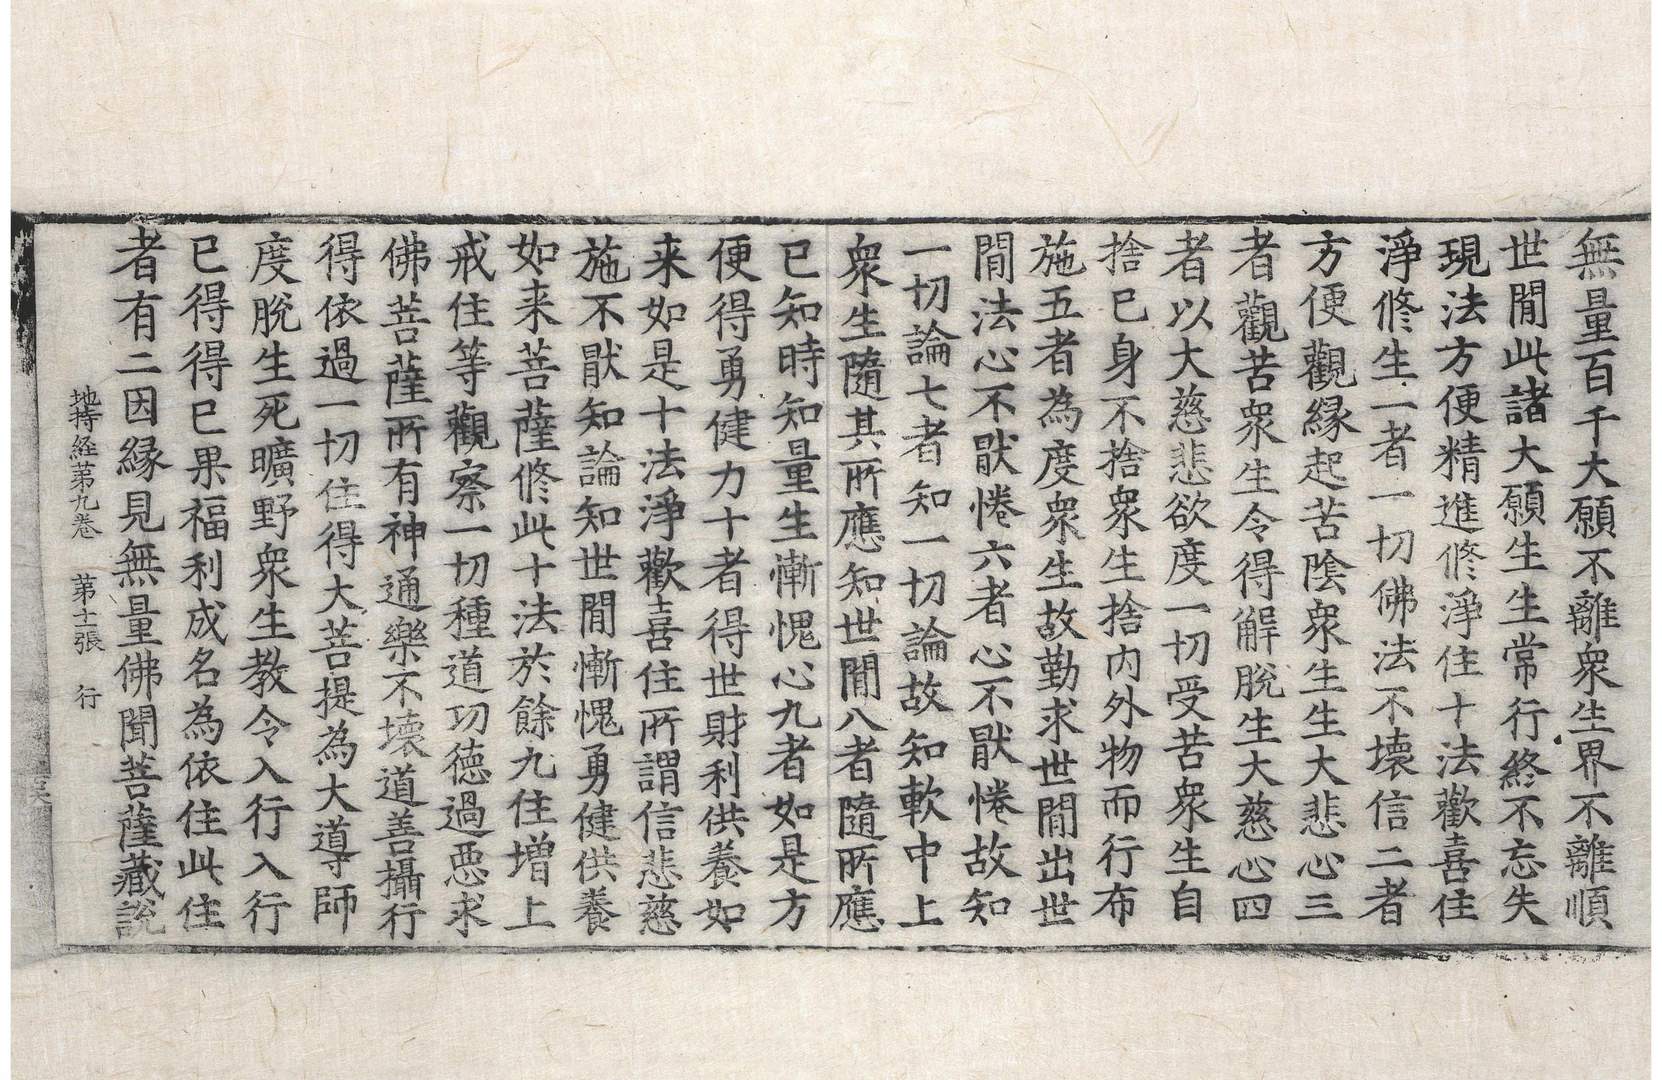 無量百千大願不離衆生界不離順
世閒此諸大願生生常行終不忘失
現法方便精進修淨住十法歡喜住
淨修生一者一切佛法不壞信二者
方便觀緣起苦陰衆生生大悲心三
者觀苦衆生令得解脫生大慈心四
者以大慈悲欲度一切受苦衆生自
捨已身不捨衆生捨内外物而行布
施五者為度衆生故勤求世閒出世
閒法心不猒惓六者心不猒惓故知
一切論七者知一切論故知軟中上
衆生隨其所應知世閒八者隨所應
已知時知量生慚愧心九者如是方
便得勇健力十者得世財利供養如
来如是十法淨歡喜住所謂信悲慈
施不猒知論知世閒慚愧勇健供養
如来菩薩修此十法於餘九住增上
戒住等觀察一切種道功德過惡求
佛菩薩所有神通樂不壞道善攝行
得依過一切住得大菩提為大導師
度脫生死曠野衆生教令入行入行
已得得已果福利成名為依住此住
者有二因緣見無量佛聞菩薩藏說
地持経第九卷 第十二張 行